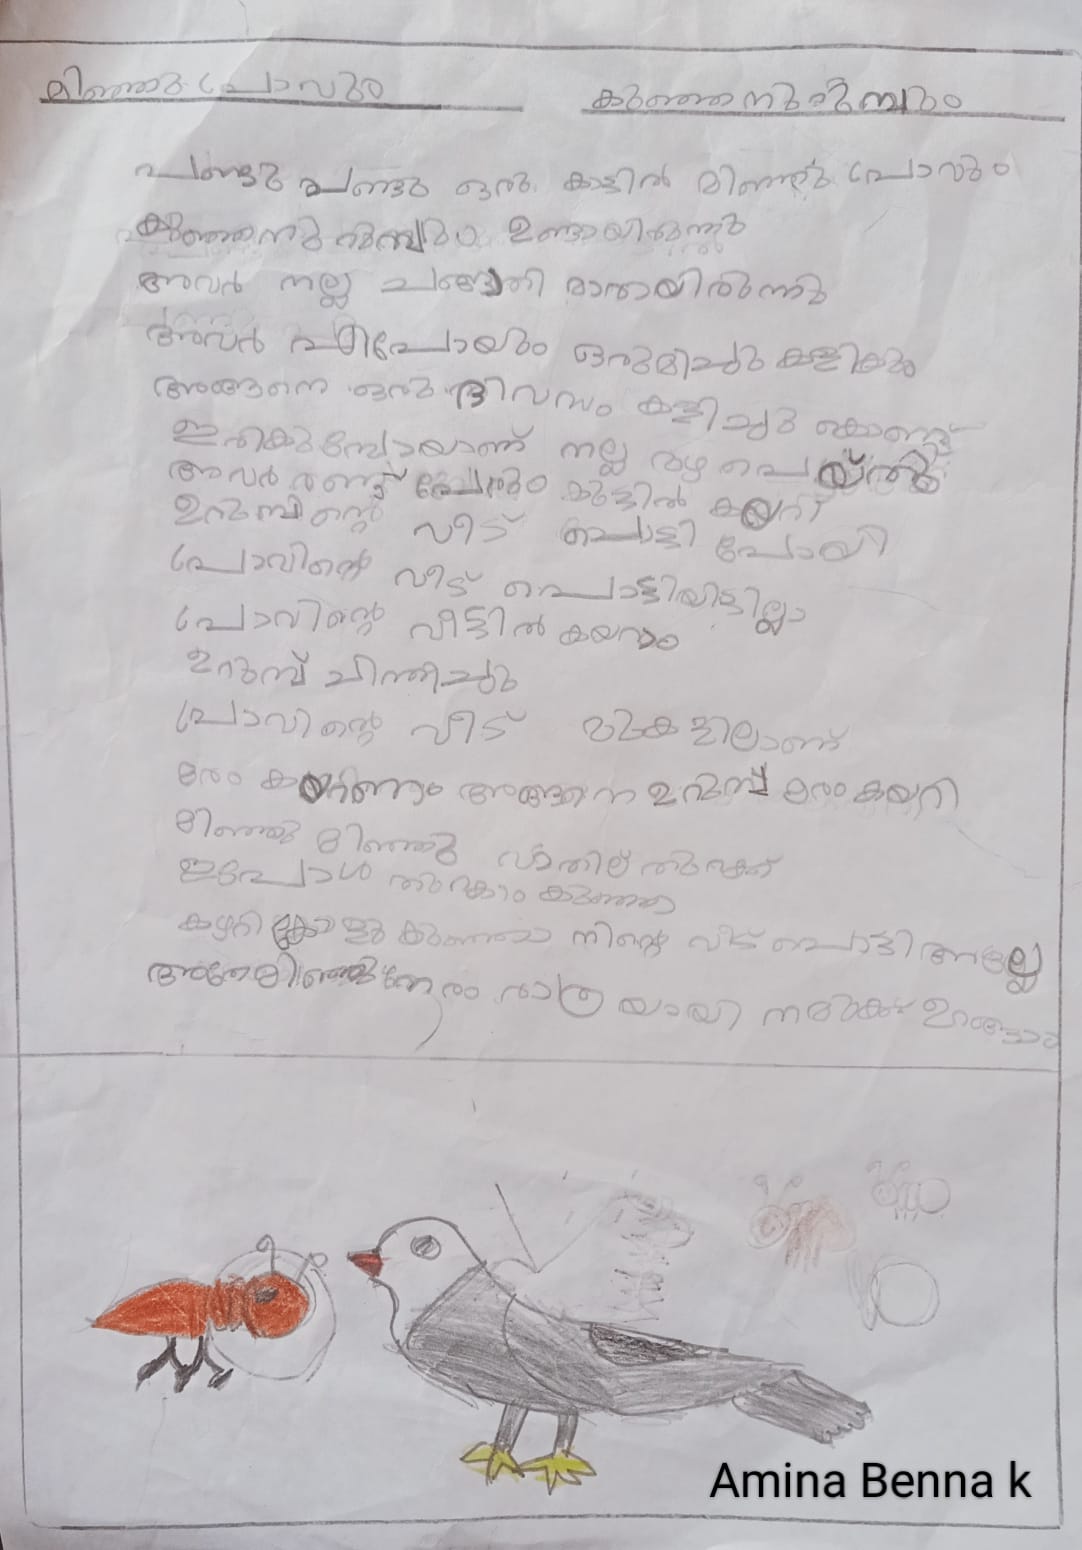 മിഞ്ഞു പ്രാവും കുഞ്ഞനുറുമ്പും
പണ്ടു പണ്ടു ഒരു കാട്ടിൽ മിഞ്ഞു പ്രാവും
കുഞ്ഞനുറുമ്പും ഉണ്ടായിരുന്നു
അവർ നല്ല ചങ്ങാതി മാരായിരുന്നു
അവർ എപ്പോയും ഒരുമിച്ചു കളികും
അങ്ങനെ ഒരു ദിവസം കളിച്ചു കൊണ്ട്
ഇരികുമ്പോയാണ് നല്ല മഴ പെയ്തു
അവർ രണ്ട് പേരും കൂട്ടിൽ കയറി
ഉറുമ്പിന്റെ വീട് പൊട്ടി പോയി
പ്രാവിന്റെ വീട് പൊട്ടിയിട്ടില്ലാ
പ്രാവിന്റെ വീട്ടിൽ കയറാം
ഉറുമ്പ് ചിന്തിച്ചു
പ്രാവിന്റെ വീട് മുകളിലാണ്
മരം കയറണം അങ്ങനെ ഉറുമ്പ് മരം കയറി
മിഞ്ഞു മിഞ്ഞു വാതില് തുറക്ക്
ഇപ്പോൾ തുറകാം കുഞ്ഞാ
കയറി കോളു കുഞ്ഞാ നിന്റെ വീട് പൊട്ടി അല്ലേ
അതേ മിഞ്ഞു നേരം രാത്രി യായി നമുക്ക് ഉറങ്ങാം
Amina Benna k